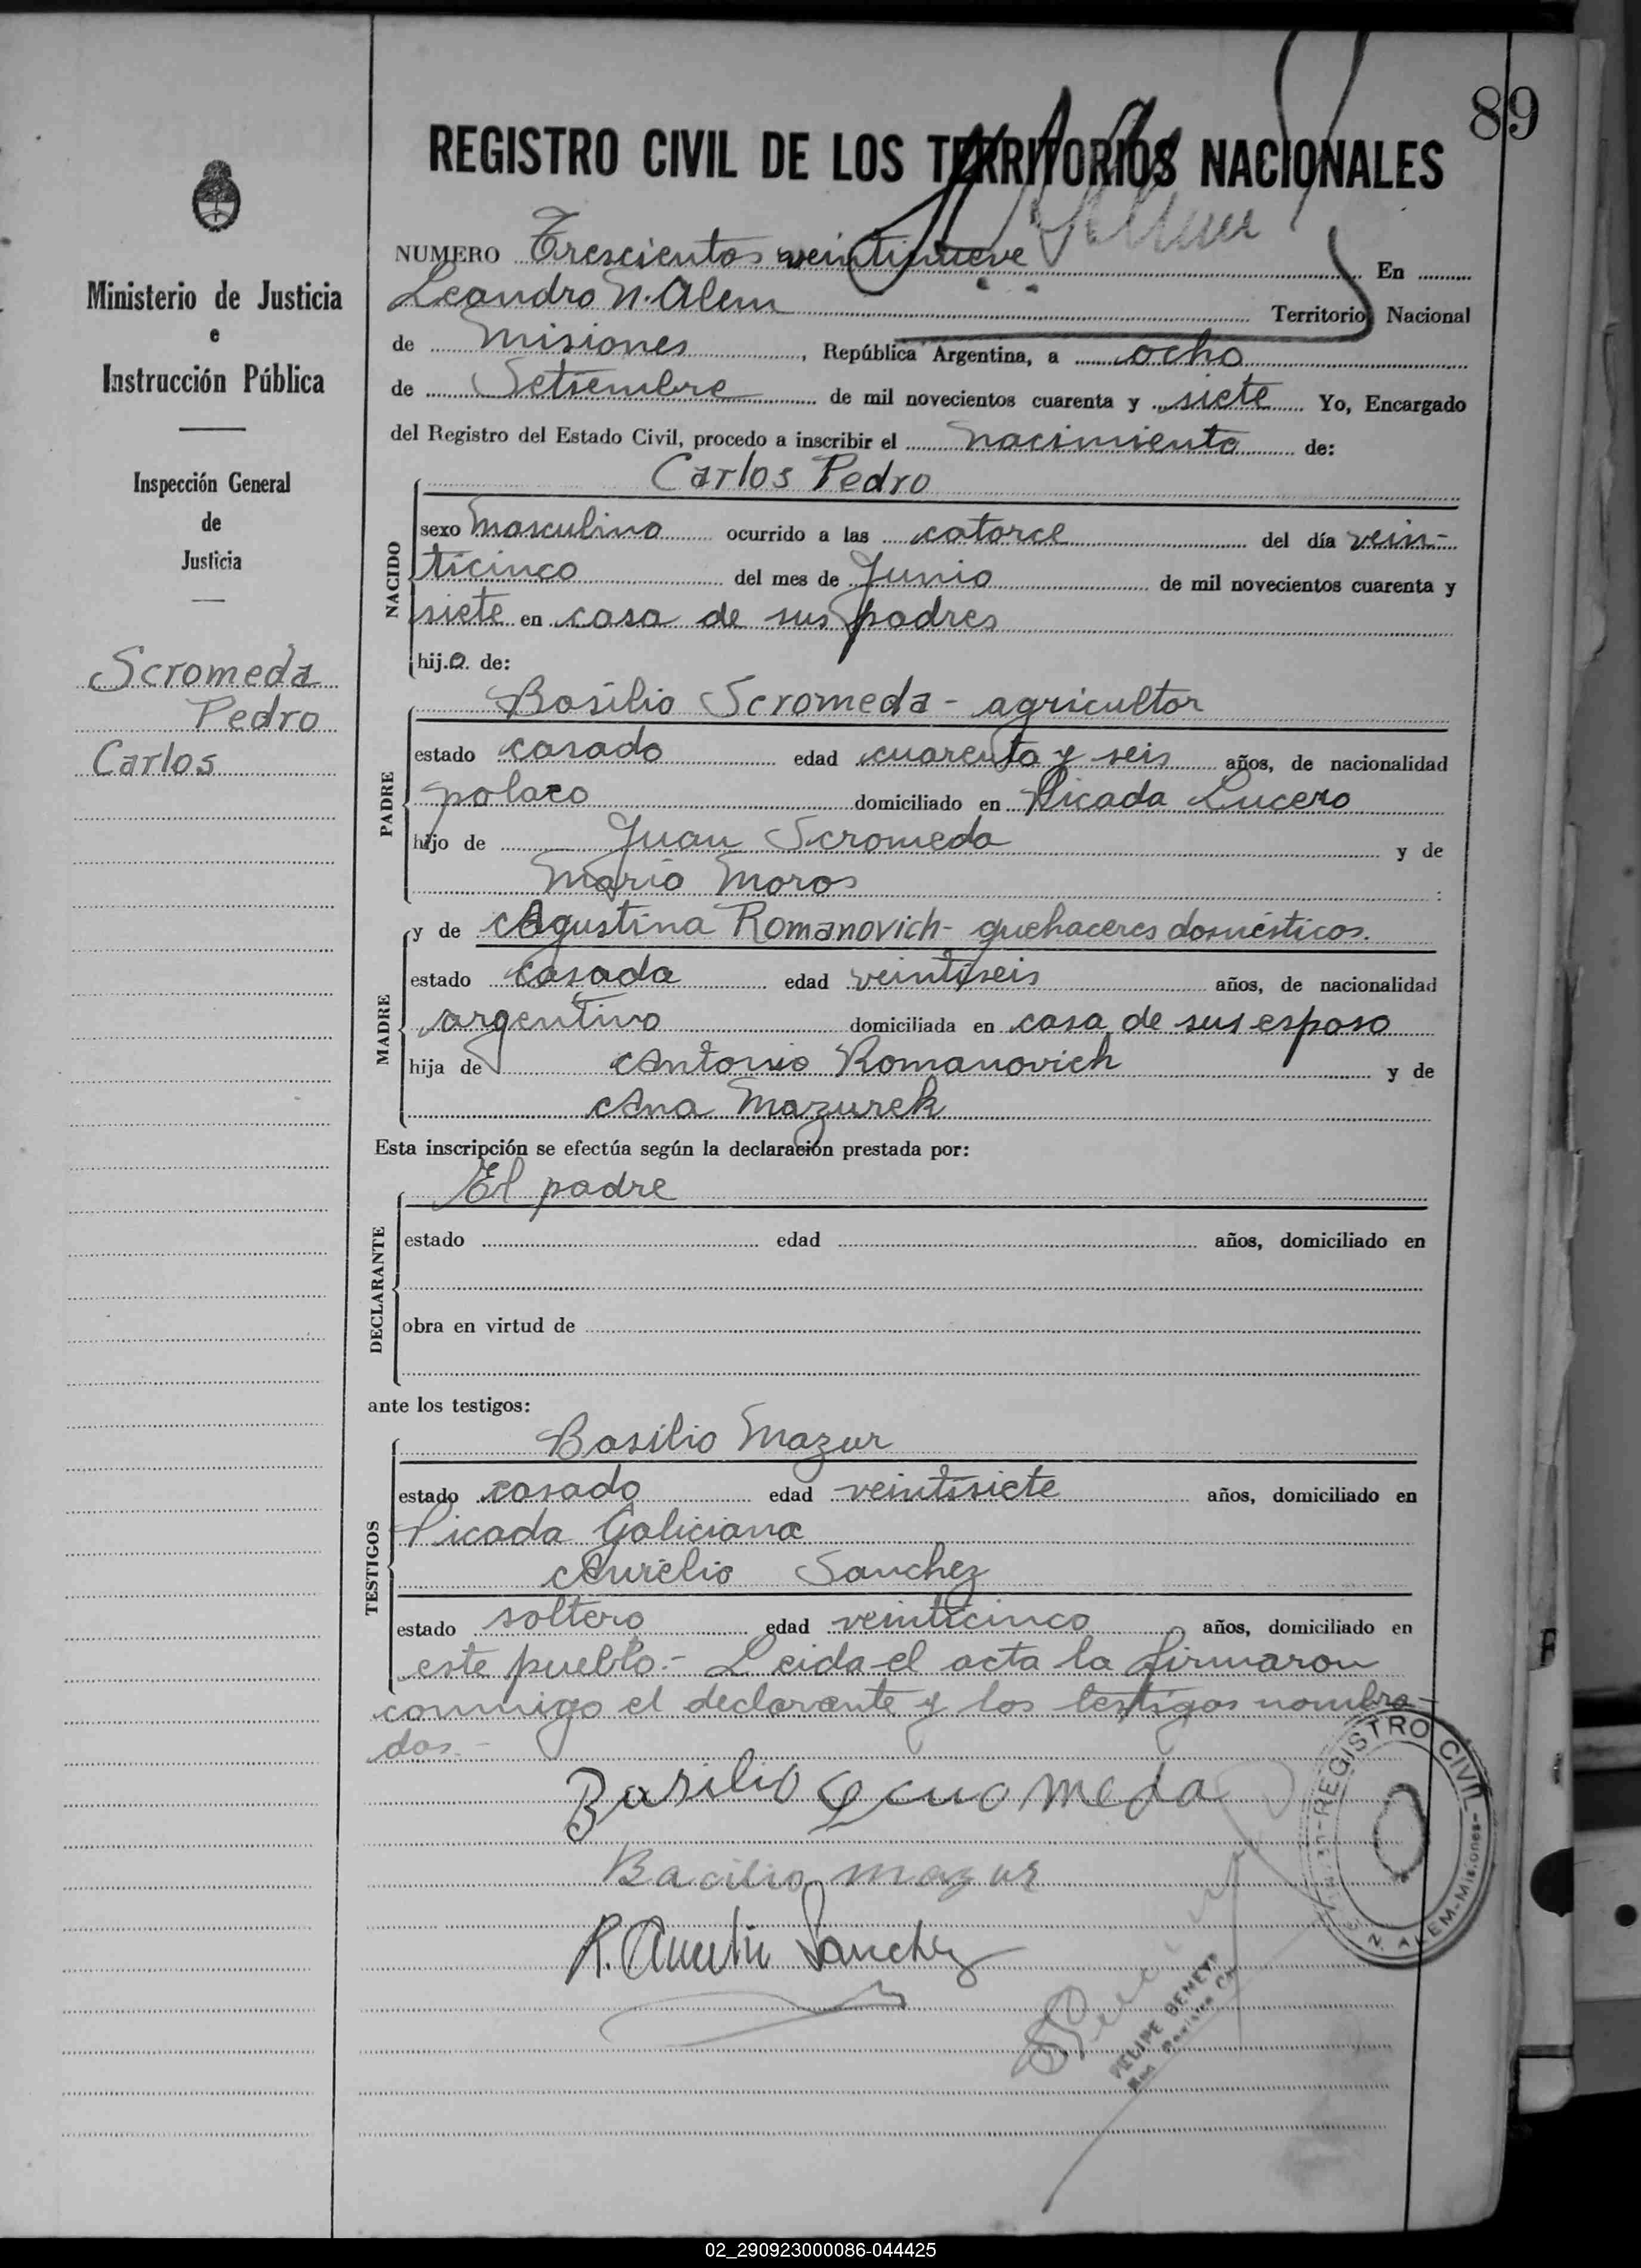 89
REGISTRO CIVIL DE LOS TERRITORIOS NACIONALES
Ministerio de Justicia
e
Instrucción Pública
Inspección General
de
Justicia
Scromeda
Pedro
Carlos
NUMERO Trescientos veintinueve En
Leandro N. Alem Territorio Nacional
de Misiones, República Argentina, a ocho
de Setiembre de mil novecientos cuarenta y siete Yo, Encargado
del Registro del Estado Civil, procedo a inscribir el nacimiento de:
NACIDO
Carlos Pedro
sexo masculino ocurrido a las catorce del día vein-
ticinco del mes de Junio de mil novecientos cuarenta y
siete en casa de sus padres
hijo de:
PADRE
Basilio Scromeda - agricultor
estado casado edad cuarenta y seis años, de nacionalidad
polaco domiciliado en Picada Lucero
hijo de Juan Scromeda y de
Maria Moros
MADRE
y de Agustina Romanovich - quehaceres domésticos.
estado casada edad veintiseis años, de nacionalidad
argentina domiciliada en casa de sus esposo
hija de Antonio Romanovich y de
Ana Mazurek
Esta inscripción se efectúa según la declaración prestada por:
DECLARANTE
El padre
estado edad años, domiciliado en
obra en virtud de
ante los testigos:
TESTIGOS
Basilio Mazur
estado casado edad veintisiete años, domiciliado en
Picada Galiciana
Aurelio Sanchez
estado soltero edad veinticinco años, domiciliado en
este pueblo.- Leida el acta la firmaron
conmigo el declarante y los testigos nombra-
dos.-
Basilio Scuomeda
Bacilio mazur
R. Aurelio Sanchez
REGISTRO CIVIL
N. ALEM-Misiones-
FELIPE
02_290923000086-044425